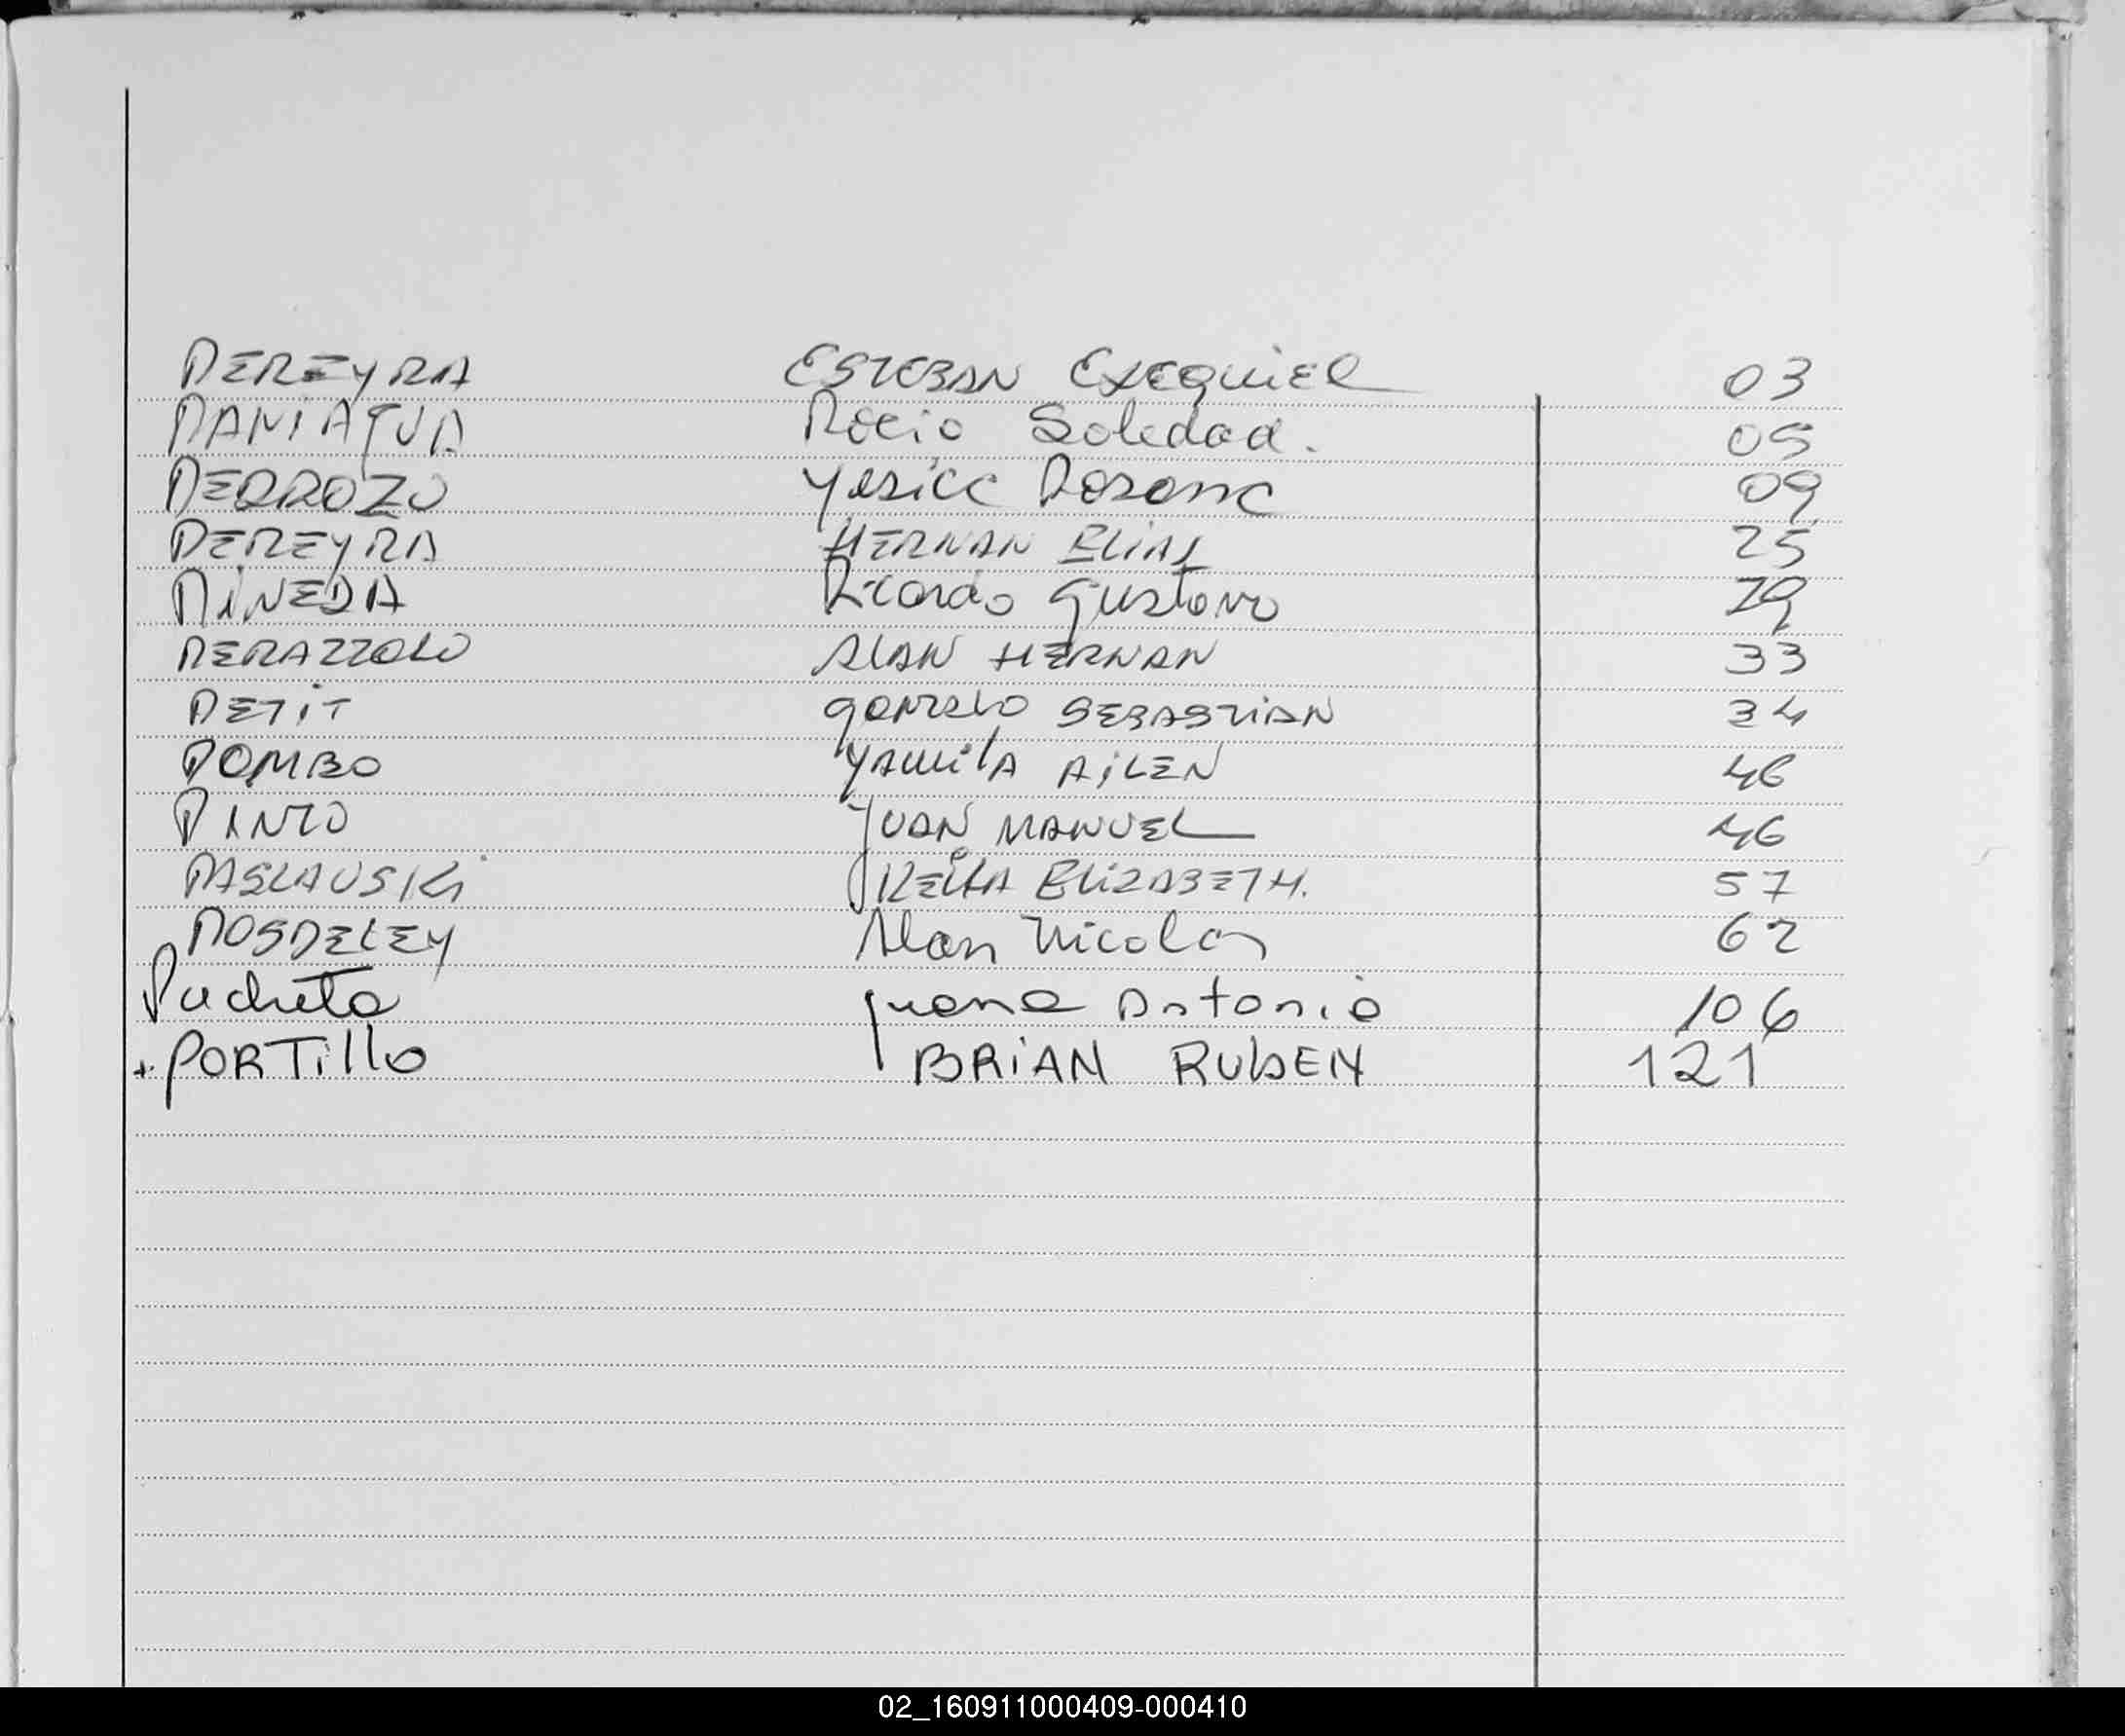 PEREYRA ESTEBAN EXEQUIEL 03
PANIAGUA Rocio Soledad. 05
PEDROZO Yesica Rosana 09
PEREYRA HERNAN ELIAS 25
PINEDA Ricardo Gustavo 29
PERAZZOLO ALAN HERNAN 33
PETIT GONZALO SEBASTIAN 34
POMBO YAMILA AILEN 46
PINTO JUAN MANUEL 46
PASLAUSKi KEILA ELIZABETH. 57
POSDELEY Alan Nicolas 62
Pucheta Juana Antonia 106
+ PORTillo BRiAN RUbEN 121
02_160911000409-000410